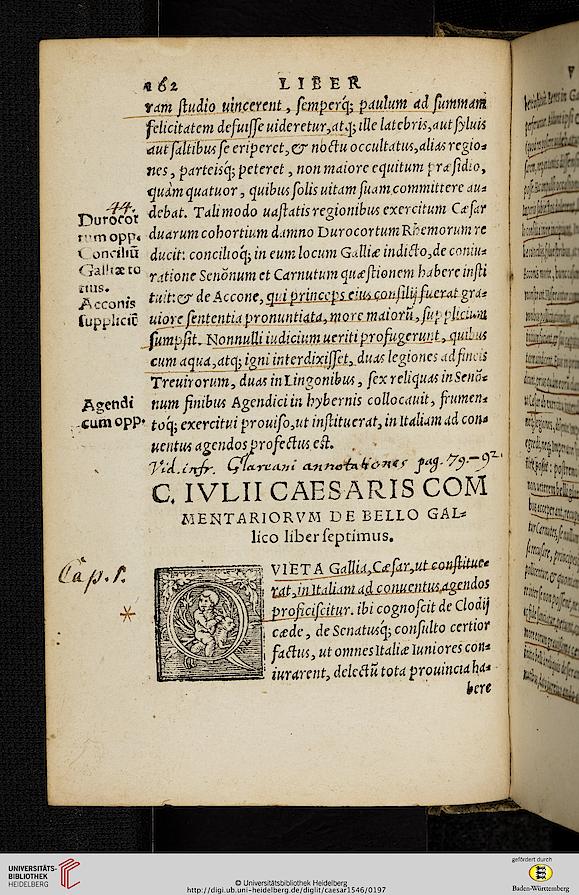 162 LIBER
ram studio uincerent, semperq́; paulum ad summam
felicitatem defuisse uideretur, atq́; ille latebris, aut syluis
aut saltibus se eriperet, & noctu occultatus, alias regio=
nes, parteisq́; peteret, non maiore equitum præsidio,
quàm quatuor, quibus solis uitam suam committere au=
debat. Tali modo uastatis regionibus exercitum Cæsar
duarum cohortium damno Durocortum Rhemorum re
ducit: concilioq́; in eum locum Galliæ indicto, de coniu=
ratione Senōnum et Carnutum quæstionem habere insti
tuit: & de Accone, qui princeps eius consilij fuerat gra=
uiore sententia pronuntiata, more maiorũ, supplicium
sumpsit. Nonnulli iudicium ueriti profugerunt, quibus
cum aqua, atq; igni interdixisset, duas legiones ad fineis
Treuirorum, duas in Lingonibus, sex reliquas in Senō=
num finibus Agendici in hybernis collocauit, frumen=
toq́; exercitui prouiso, ut instituerat, in Italiam ad con=
uentus agendos profectus est.
44.
Durocor
tum opp.
Conciliũ
Galliæ to
tius.
Acconis
suppliciũ
Agendi
cum opp.
Vid. infr. Glareani annotationes pag. 79.–92.
C. IVLII CAESARIS COM
MENTARIORVM DE BELLO GAL=
lico liber septimus.
Cap. 1.
*
QVIETA Gallia, Cæsar, ut constitue=
rat, in Italiam ad conuentus agendos
proficiscitur. ibi cognoscit de Clodij
cæde, de Senatusq́; consulto certior
factus, ut omnes Italiæ Iuniores con=
iurarent, delectũ tota prouincia ha=
bere
UNIVERSITÄTS-
BIBLIOTHEK
HEIDELBERG
© Universitätsbibliothek Heidelberg
http://digi.ub.uni-heidelberg.de/diglit/caesar1546/0197
gefördert durch
Baden-Württemberg